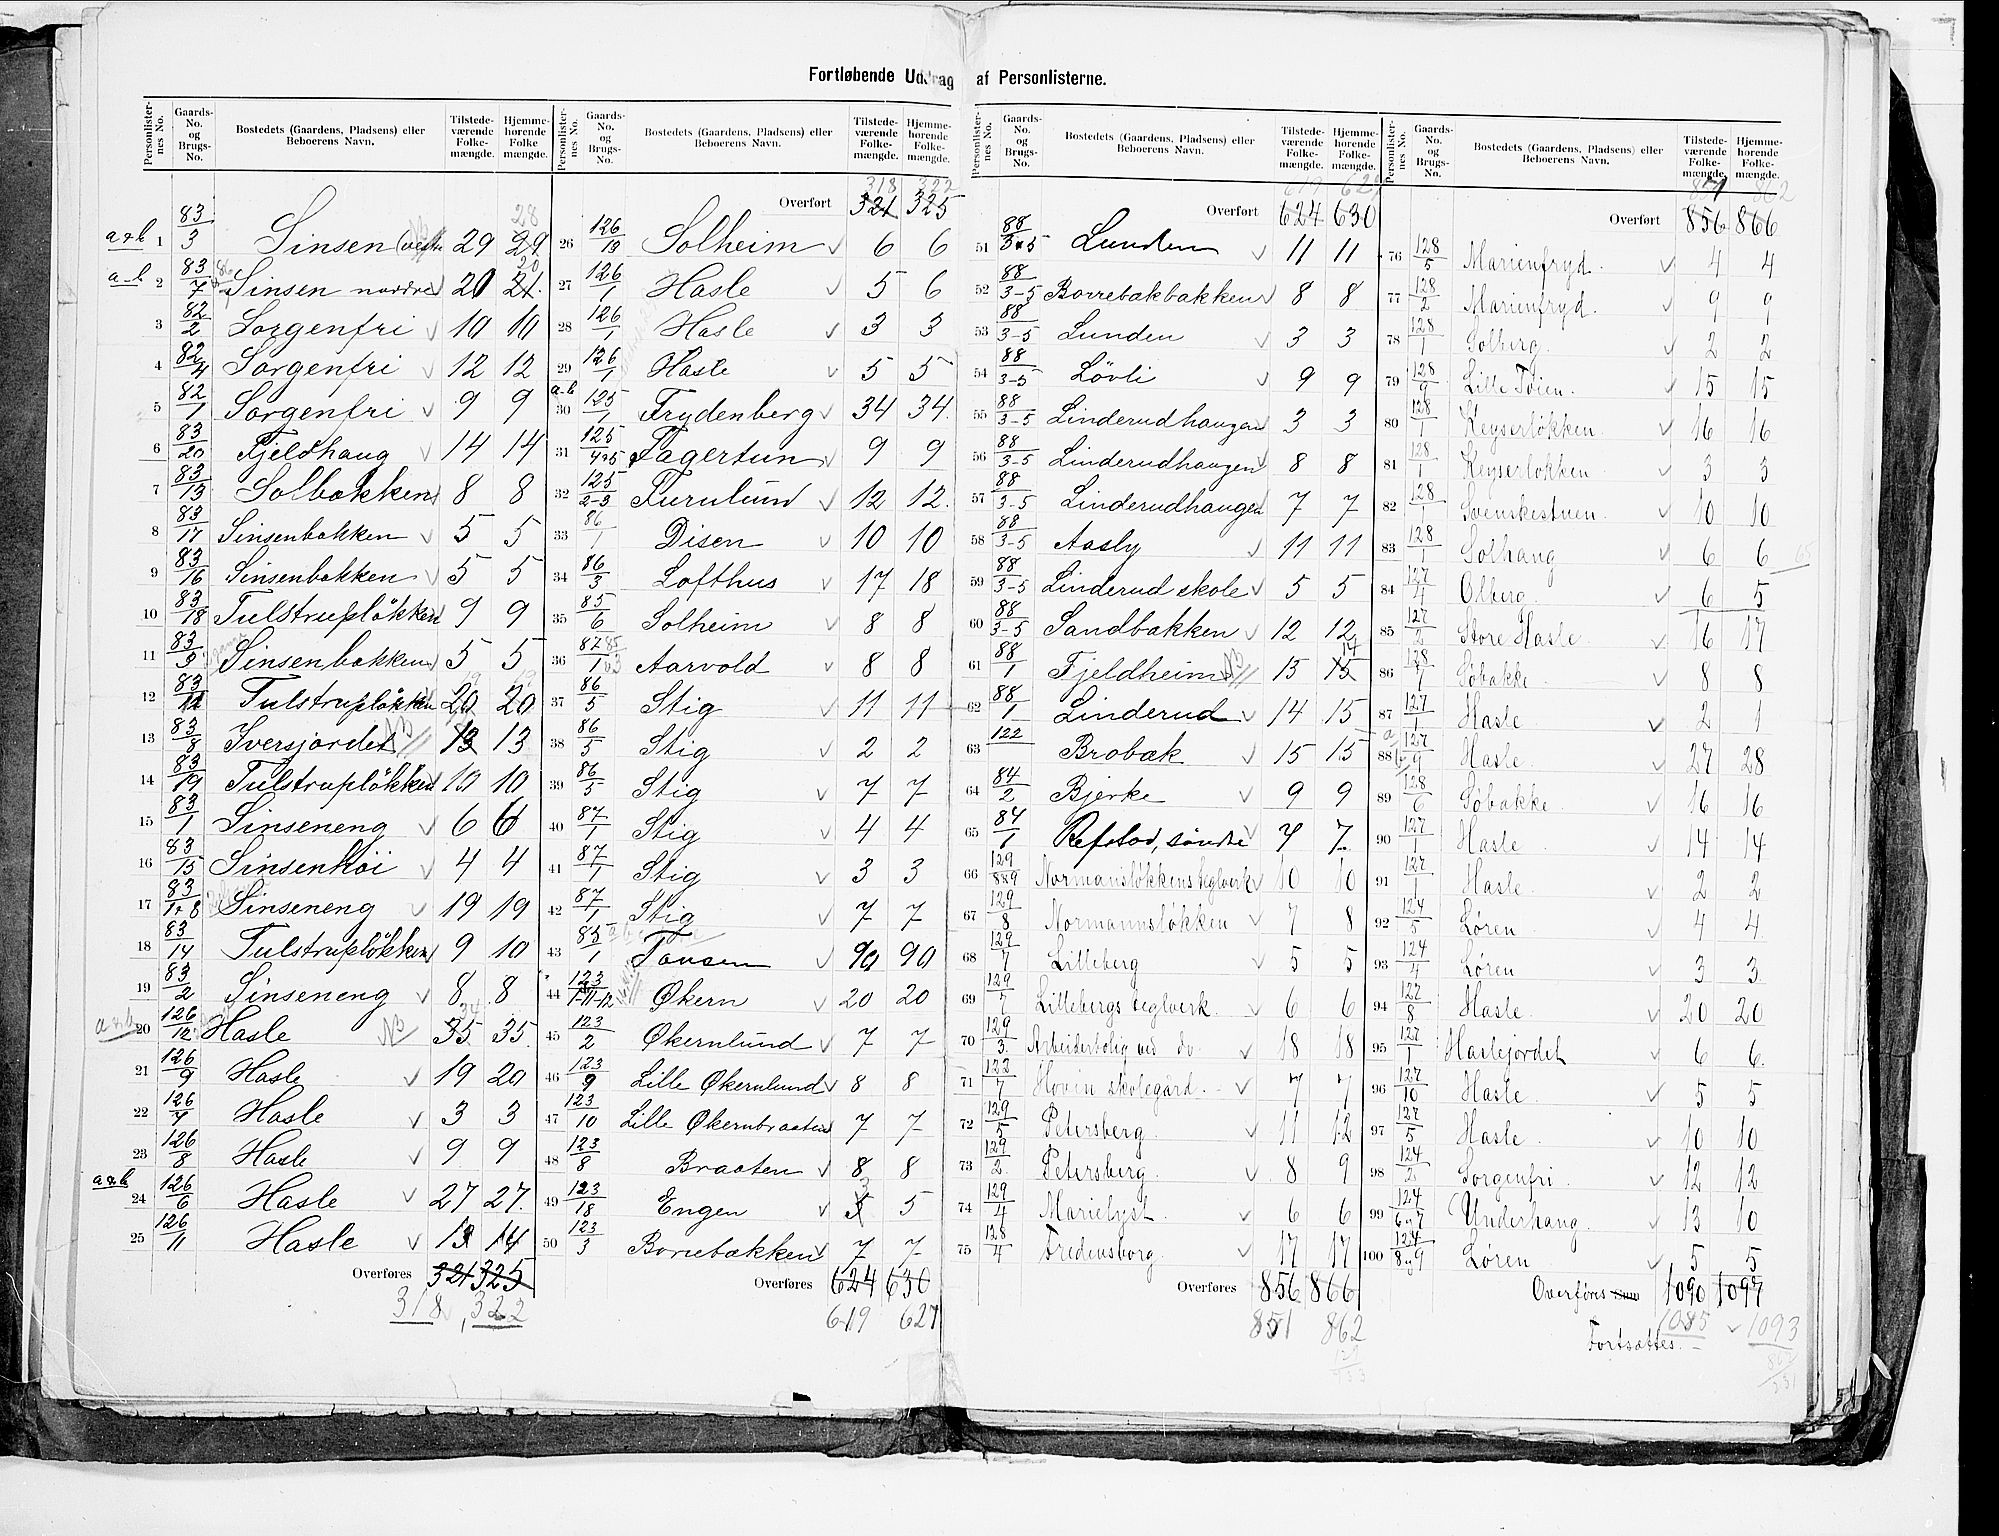 Fortløbende Uddrag af Personlisterne.
Personlisternes No. | Gaards-No. og Brugs-No. | Bostedets (Gaardens, Pladsens) eller Beboerens Navn. | Tilstedeværende Folkemængde. | Hjemmehørende Folkemængde.
a & b 1 83/3 Sinsen (vestre 29 29 28
a-b 2 83/7 Sinsen nordre 20 21 20
3 82/2 Sorgenfri 10 10
4 82/4 Sorgenfri 12 12
5 82/1 Sorgenfri 9 9
6 83/20 Fjeldhaug 14 14
7 83/13 Solbakken 8 8
8 83/17 Sinsenbakken 5 5
9 83/16 Sinsenbakken 5 5
10 83/18 Tulstrupløkken 9 9
11 83/9 Sinsenbakken 5 5
12 83/12 Tulstrupløkken 20 20
13 83/8 Iversjordet NB 13 13
14 83/19 Tulstrupløkken 10 10
15 83/1 Sinseneng 6 6
16 83/15 Sinsenhöi 4 4
17 83/1+8 Sinseneng 19 19
18 83/14 Tulstrupløkken 9 10
19 83/2 Sinseneng 8 8
a & b 20 126/12 Hasle NB 35 35 34
21 126/9 Hasle 19 20
22 126/7 Hasle 3 3
23 126/8 Hasle 9 9
a & b 24 126/6 Hasle 27 27
25 126/11 Hasle 13 14
Overføres 321 325
318 322
318 322
Overført 321 325
26 126/19 Solheim 6 6
27 126/1 Hasle 5 6
28 126/1 Hasle 3 3
29 126/1 Hasle 5 5
a-b 30 125/1 Frydenberg 34 34
31 125/4&5 Fagertun 9 9
32 125/2-3 Furulund 12 12
33 86/1 Disen 10 10
34 86/3 Lofthus 17 18
35 85/6 Solheim 8 8
36 87/1 Aarvold 8 8
37 86/5 Stig 11 11
38 86/5 Stig 2 2
39 86/5 Stig 7 7
40 87/1 Stig 4 4
41 87/1 Stig 3 3
42 87/1 Stig 7 7
43 85/1 Tonsen 90 90
44 123/1-11-12 Økern 20 20
45 123/2 Økernlund 7 7
46 123/9 Lille Økernlund 8 8
47 123/10 Lille Økernbraaten 7 7
48 123/8 Braaten 8 8
49 123/18 Engen 5 5 3
50 123/3 Borrebækken 7 7
Overføres 624 630
619 627
619 627
Overført 624 630
51 88/3&5 Lunden 11 11
52 88/3-5 Borrebækbakken 8 8
53 88/3-5 Lunden 3 3
54 88/3-5 Lövli 9 9
55 88/3-5 Linderudhaugen 3 3
56 88/3-5 Linderudhaugen 8 8
57 88/3-5 Linderudhaugen 7 7
58 88/3-5 Aasly 11 11
59 88/3-5 Linderud skole 5 5
60 88/3-5 Sandbakken 12 12
61 88/1 Fjeldheim NB 15 15 14
62 88/1 Linderud 14 15
63 122 Brobæk 15 15
64 84/2 Bjerke 9 9
65 84/1 Refstad, söndre 7 7
66 129/8&9 Normansløkkens teglverk 10 10
67 129/8 Normannsløkken 7 8
68 129/7 Lilleberg 5 5
69 129/7 Lillebergs teglverk 6 6
70 129/3 Arbeiderbolig ved do 18 18
71 122/7 Hovin skolegård 7 7
72 129/5 Petersberg 11 12
73 129/2 Petersberg 8 9
74 129/4 Marielyst 6 6
75 128/4 Fredensborg 17 17
Overføres 856 866
851 862
851 862
Overført 856 866
76 128/5 Marienfryd 4 4
77 128/2 Marienfryd 9 9
78 128/1 Solberg 2 2
79 128/9 Lille Tøien 15 15
80 128/1 Keyserløkken 16 16
81 128/1 Keyserløkken 3 3
82 128/1 Svenskestuen 10 10
83 128/1 Solhaug 6 6
84 127/4 Olberg 6 5
85 127/2 Store Hasle 16 17
86 128/7 Søbakke 8 8
87 127/1 Hasle 2 1
88 127/9 Hasle 27 28
89 128/6 Søbakke 16 16
90 127/1 Hasle 14 14
91 127/1 Hasle 2 2
92 124/5 Løren 4 4
93 124/4 Løren 3 3
94 127/8 Hasle 20 20
95 127/1 Haslejordet 6 6
96 127/10 Hasle 5 5
97 127/5 Hasle 10 10
98 124/2 Sorgenfri 12 12
99 124/6&7 Underhaug 13 10
100 124/8&9 Løren 5 5
Overføres 1090 1097
1085 1093
Fortsættes.